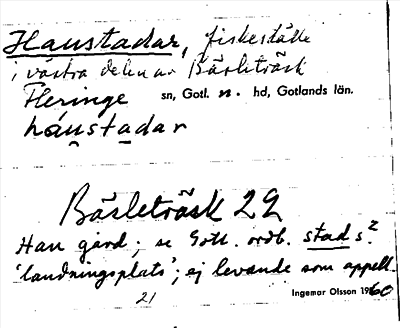 Haustadar, fiskeställe
i västra delen av Bäsleträsk
Fleringe sn, Gotl. n. hd, Gotlands län.
háustadar
Bäsleträsk 22
Hau gård; se Gotl. ordb. stad s.²
'landningsplats'; ej levande som appell.
21 Ingemar Olsson 1960